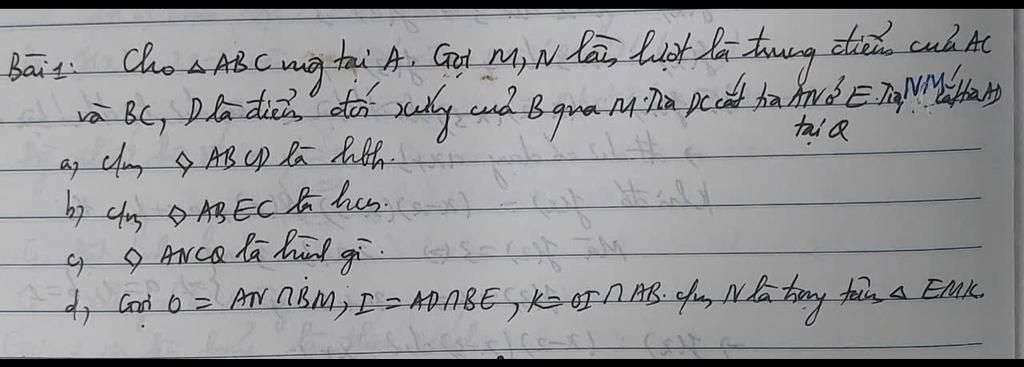 Bài 1: Cho △ABC vuông tại A. Gọi M, N lần lượt là trung điểm của AC
và BC, D là điểm đối xứng của B qua M. Tia DC cắt tia AN ở E. Tia NM cắt tia AD
tại Q
a, c/m ◇ ABCD là hbh.
b, c/m ◇ ABEC là hcn.
c, ◇ ANCQ là hình gì.
d, Gọi O = AN ∩ BM, I = AD ∩ BE, K = OI ∩ AB. c/m N là trọng tâm △ EMK.